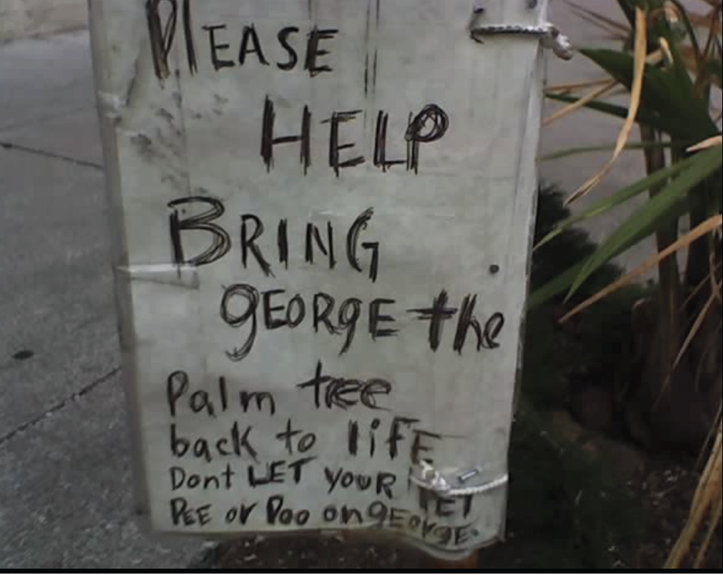 PlEASE
HELP
BRING
gEORgE the
Palm tree
back to lifE
Dont LET your PET
PEE or Poo on gEORgE.